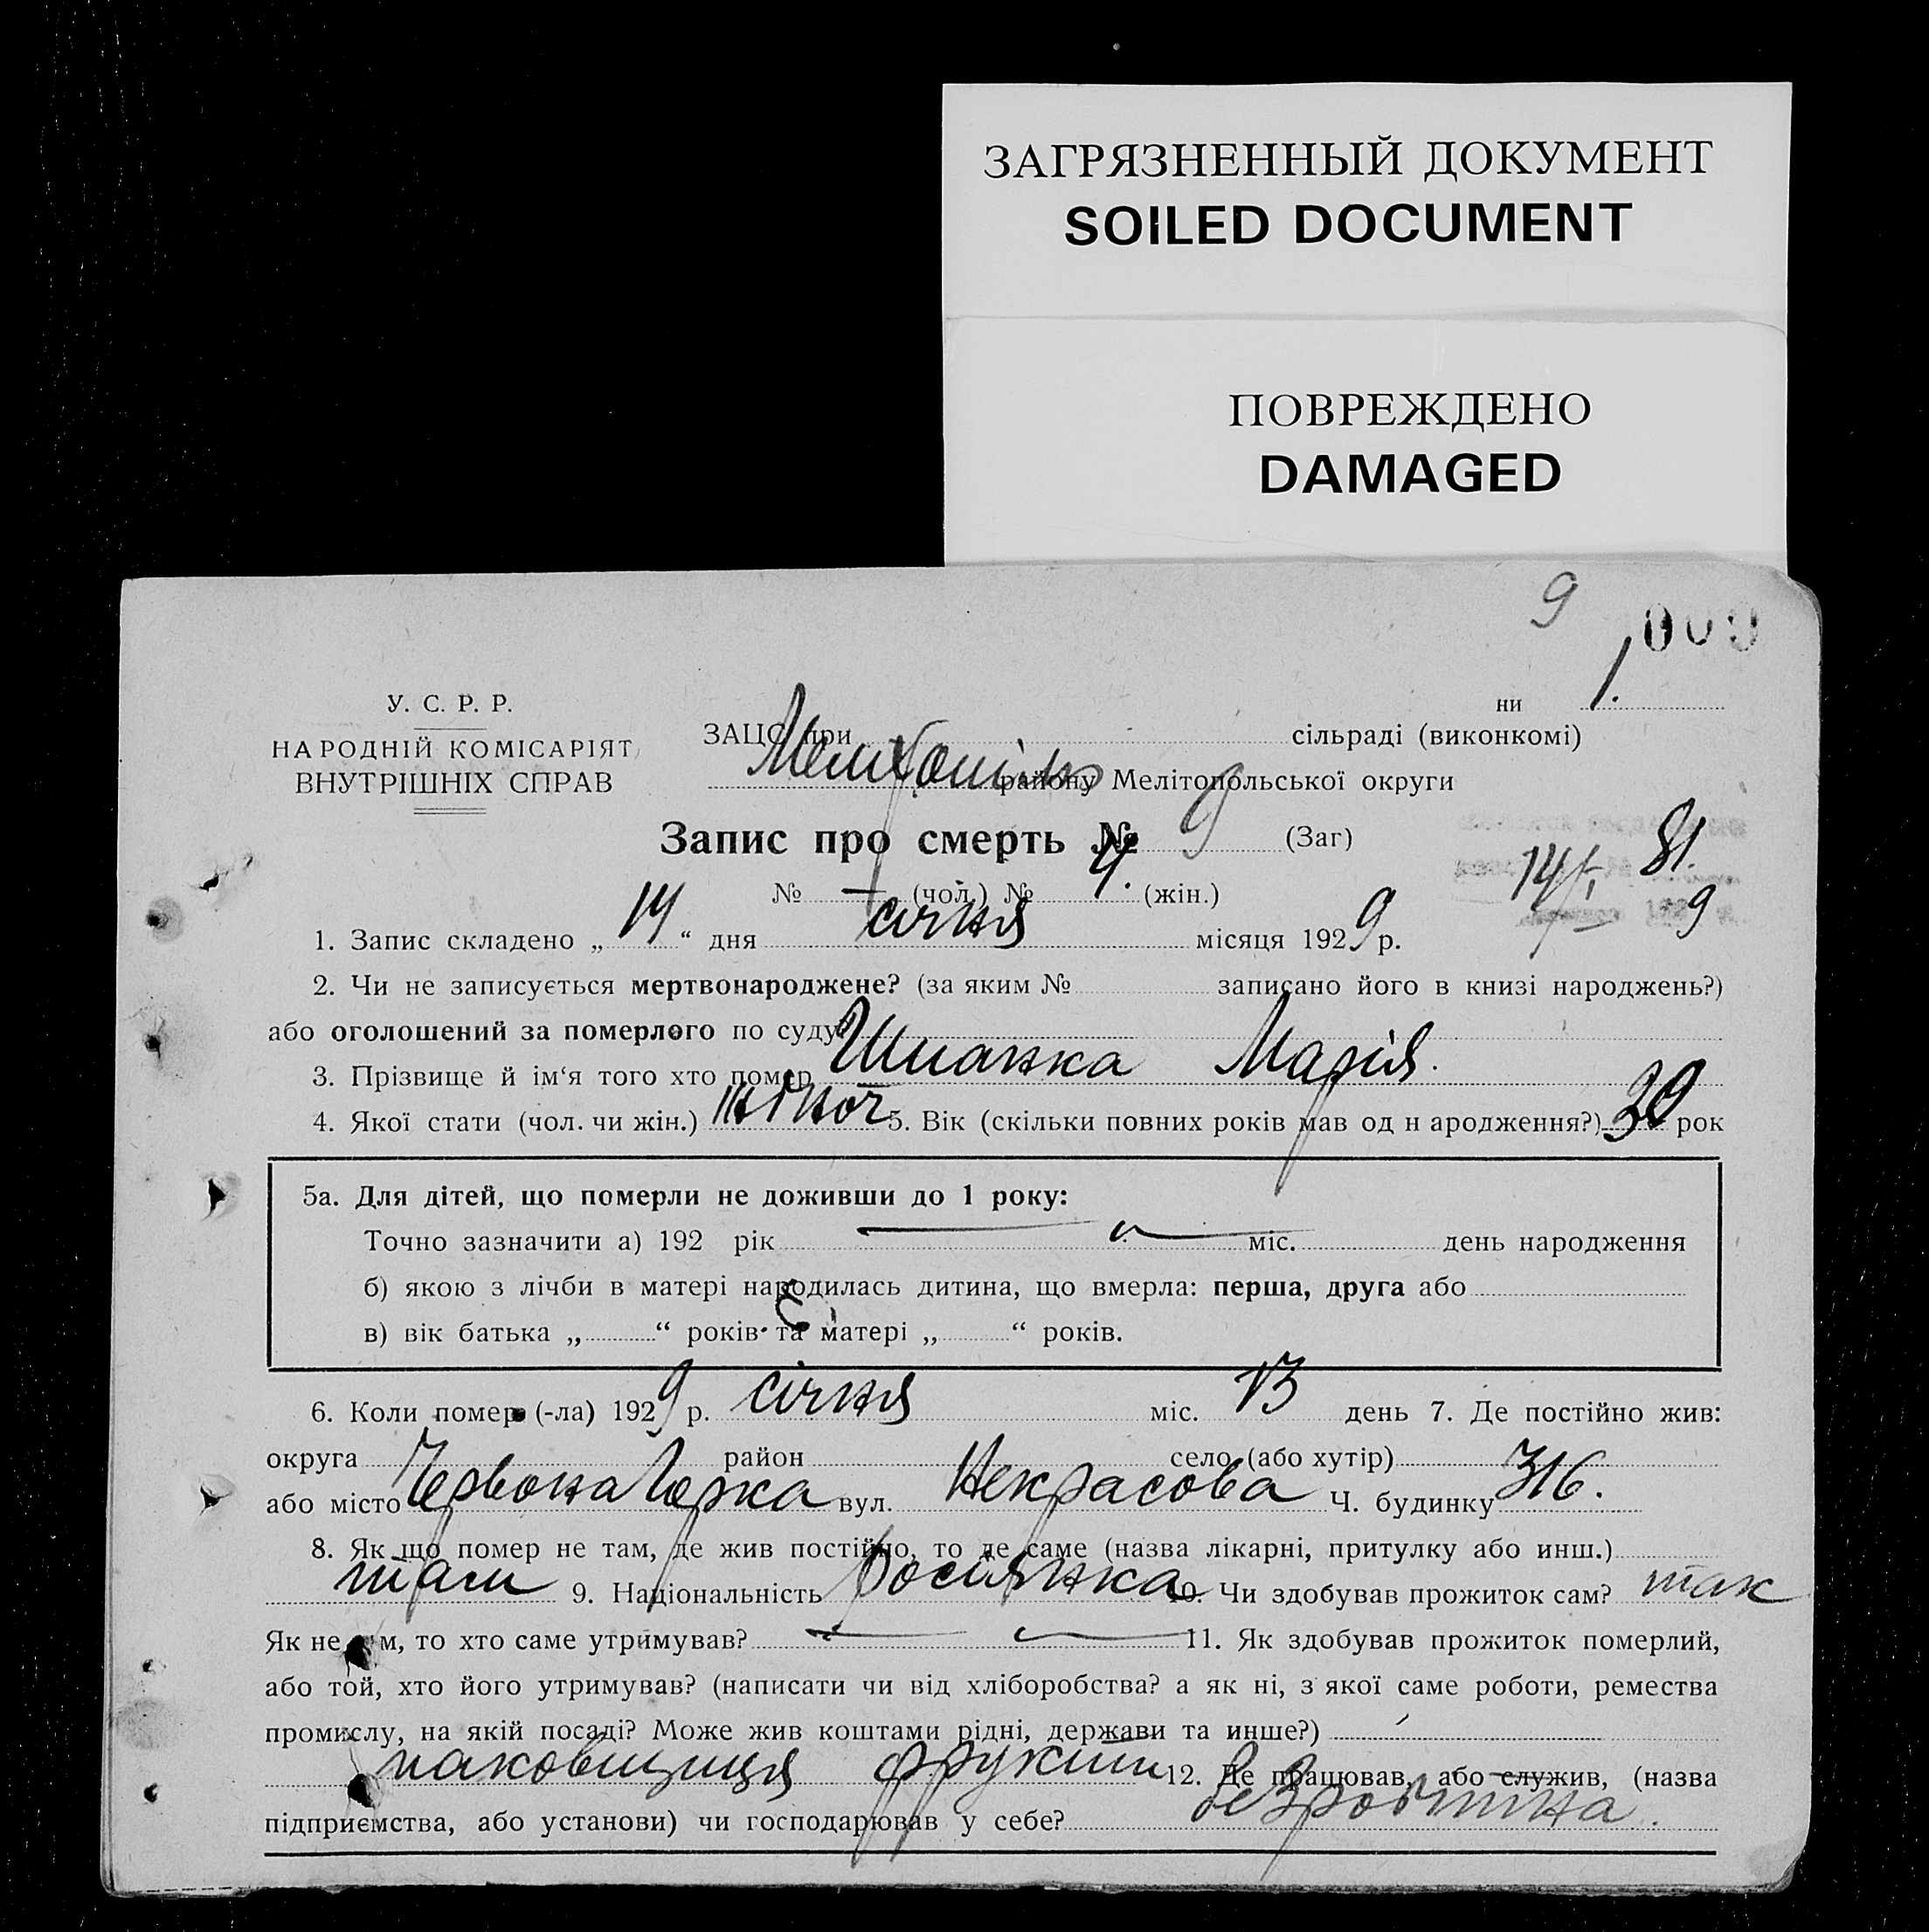 ЗАГРЯЗНЕННЫЙ ДОКУМЕНТ
SOILED DOCUMENT
ПОВРЕЖДЕНО
DAMAGED
9
009
ни 1.
У. С. Р. Р.
НАРОДНІЙ КОМІСАРІЯТ
ВНУТРІШНІХ СПРАВ
ЗАЦС при сільраді (виконкомі)
Мелітопіль району Мелітопольської округи
Запис про смерть № 9 (Заг)
№ — (чол.) № 4. (жін.)
14/I 81.
9
1. Запис складено „ 14 “ дня січня місяця 1929 р.
2. Чи не записується мертвонароджене? (за яким № записано його в книзі народжень?)
або оголошений за померлого по суду?
3. Прізвище й ім‘я того хто помер Шпанка Марія.
4. Якої стати (чол. чи жін.) жіноч 5. Вік (скільки повних років мав од н ародження?) 39 рок
5а. Для дітей, що померли не доживши до 1 року:
Точно зазначити а) 192 рік міс. день народження
б) якою з лічби в матері народилась дитина, що вмерла: перша, друга або
в) вік батька „ “ років та матері „ “ років.
6. Коли помер (-ла) 1929 р. січня міс. 13 день 7. Де постійно жив:
округа район село (або хутір)
або місто Червона Горка вул. Некрасова Ч. будинку 316.
8. Як що помер не там, де жив постійно, то де саме (назва лікарні, притулку або инш.)
там 9. Національність росиянка 10. Чи здобував прожиток сам? так
Як не м, то хто саме утримував? 11. Як здобував прожиток померлий,
або той, хто його утримував? (написати чи від хліборобства? а як ні, з якої саме роботи, ремества
промислу, на якій посаді? Може жив коштами рідні, держави та инше?)
паковщиця фрукти 12. Де працював, або служив, (назва
підприємства, або установи) чи господарював у себе? безробітна.